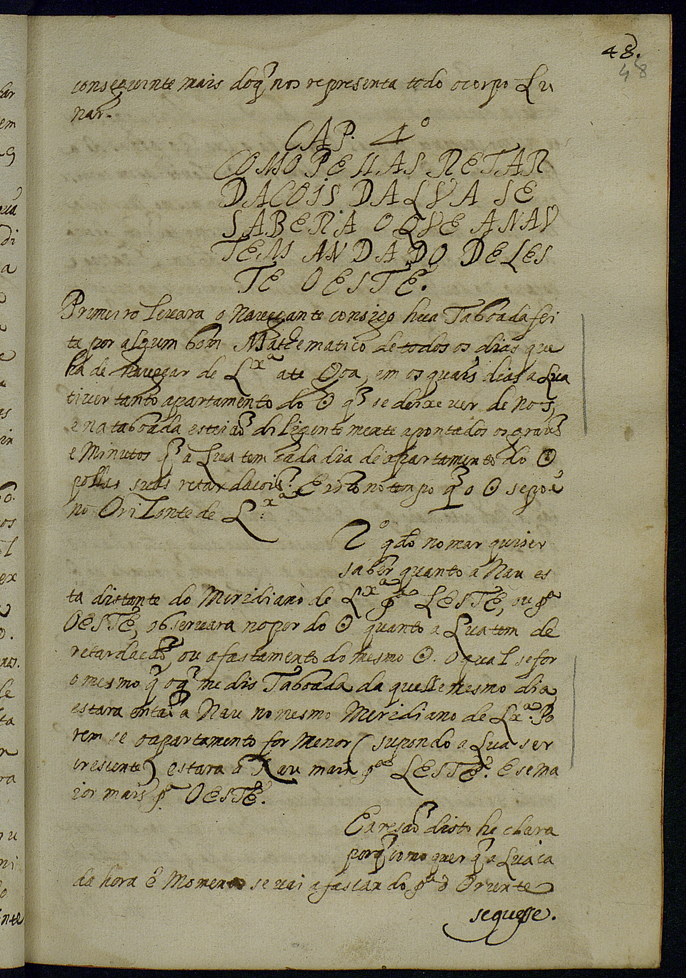 48.
48
conseguinte mais doq̃ nos representa todo ocorpo Lu
nar.
CAP. 4º
COMO PELLAS RETAR
DACOIS DA LVA SE
SABERA O QVE A NAV
TEM ANDADO DE LES
TE OESTE.
Primeiro Levara o Navegante consigo hũa Taboada fei
ta por algum bom Mathematico de todos os dias que
ha de navegar de Lxª ate Goa, em os quais dias a Lua
tiver tanto apartamento do ☉ q̃ se deixe ver de nos,
e na taboada esteiaõ diligentemente apontados os graos
e Minutos q̃ a Lua tem cada dia de apartamento do ☉
pellas suas retardacois. E isto no tempo q̃ o ☉ se poẽ
no Orizonte de Lxª.
2º qdo no mar quiser
saber quanto a Nau es
ta distante do Meridiano de Lxª pª LESTE, ou pª
OESTE, observara no por do ☉ quanto a Lua tem de
retardacaõ, ou afastamento do mesmo ☉. O qual se for
o mesmo q̃ oq̃ me dis Taboada daquelle mesmo dia
estara entaõ a Nau no mesmo Meridiano de Lxª. Po
rem se o apartamento for Menor (supondo a Lua ser
crescente) estara a Nau mais pª LESTE. E se ma
ior mais pª OESTE.
E a resaõ disto he clara
porq̃ como quer q̃ a Lua ca
da hora e Momento se vai afastando pª o Oriente
seguesse.